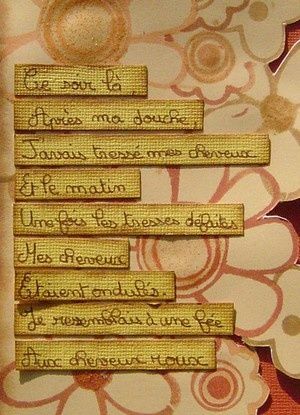 Ce soir là
Après ma douche
J'avais tressé mes cheveux
Et le matin
Une fois les tresses défaites
Mes cheveux
Etaient ondulés.
Je resemblais à une fée
Aux cheveux roux